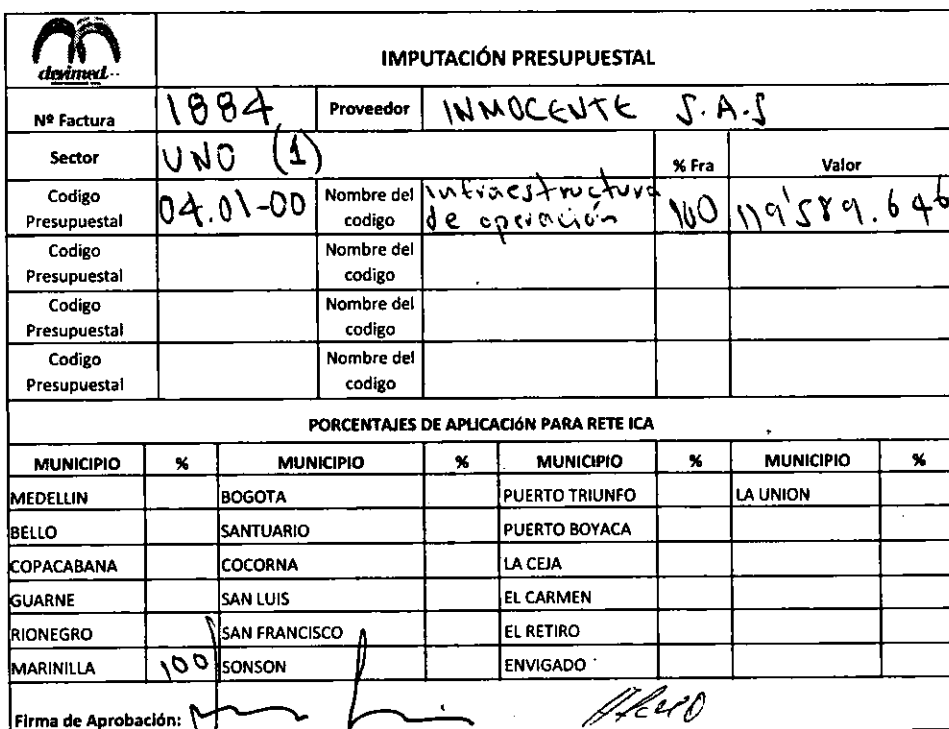 devimed
IMPUTACIÓN PRESUPUESTAL
Nº Factura 1884 Proveedor INMOCENTE S.A.S
Sector UNO (1) % Fra Valor
Codigo Presupuestal 04.01-00 Nombre del codigo Infraestructura de operación 100 119'589.646
Codigo Presupuestal Nombre del codigo
Codigo Presupuestal Nombre del codigo
Codigo Presupuestal Nombre del codigo
PORCENTAJES DE APLICACIÓN PARA RETE ICA
MUNICIPIO % MUNICIPIO % MUNICIPIO % MUNICIPIO %
MEDELLIN BOGOTA PUERTO TRIUNFO LA UNION
BELLO SANTUARIO PUERTO BOYACA
COPACABANA COCORNA LA CEJA
GUARNE SAN LUIS EL CARMEN
RIONEGRO SAN FRANCISCO EL RETIRO
MARINILLA 100 SONSON ENVIGADO
Firma de Aprobación: